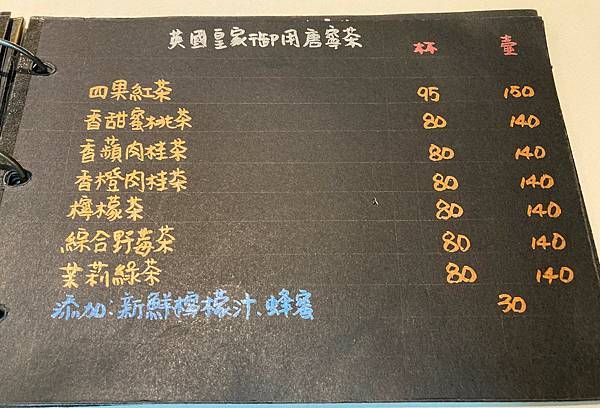 英國皇家御用唐寧茶 杯 壺
四果紅茶 95 150
香甜蜜桃茶 80 140
香蘋肉桂茶 80 140
香橙肉桂茶 80 140
檸檬茶 80 140
綜合野莓茶 80 140
茉莉綠茶 80 140
添加:新鮮檸檬汁、蜂蜜 30